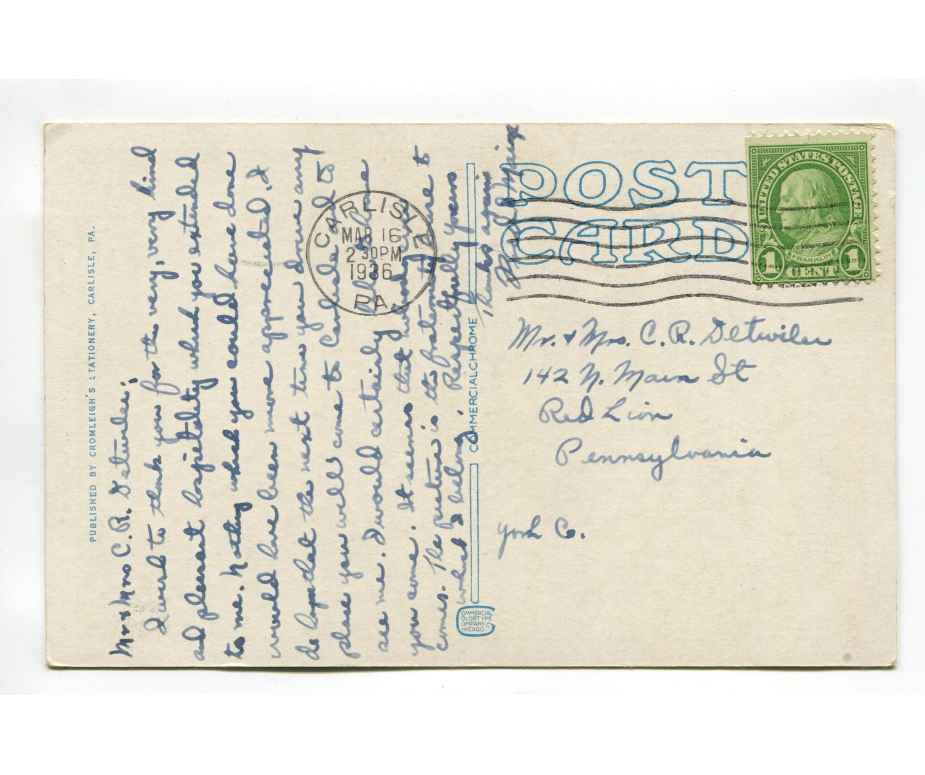 PUBLISHED BY CROMLEIGH'S STATIONERY, CARLISLE, PA.
Mr & Mrs C. R. Detwiler;
I wish to thank you for the very, very kind
and pleasant hospitality which you extended
to me. Nothing which you could have done
would have been more appreciated. I
do hope that the next time you down any
place you will come to Carlisle and to
see me. I would certainly like to have
you come. It seems that nobody ever
comes. The picture is the fraternity house to
which I belong. Respectfully yours
Thanks again
COMMERCIALCHROME
COMMERCIAL
COLORTYPE
COMPANY
CHICAGO
POST
CARD
CARLISLE
MAR 16
2 30PM
1936
PA.
UNITED STATES POSTAGE
FRANKLIN
1 CENT 1
Mr. & Mrs. C. R. Detwiler
142 N. Main St
Red Lion
Pennsylvania
York Co.